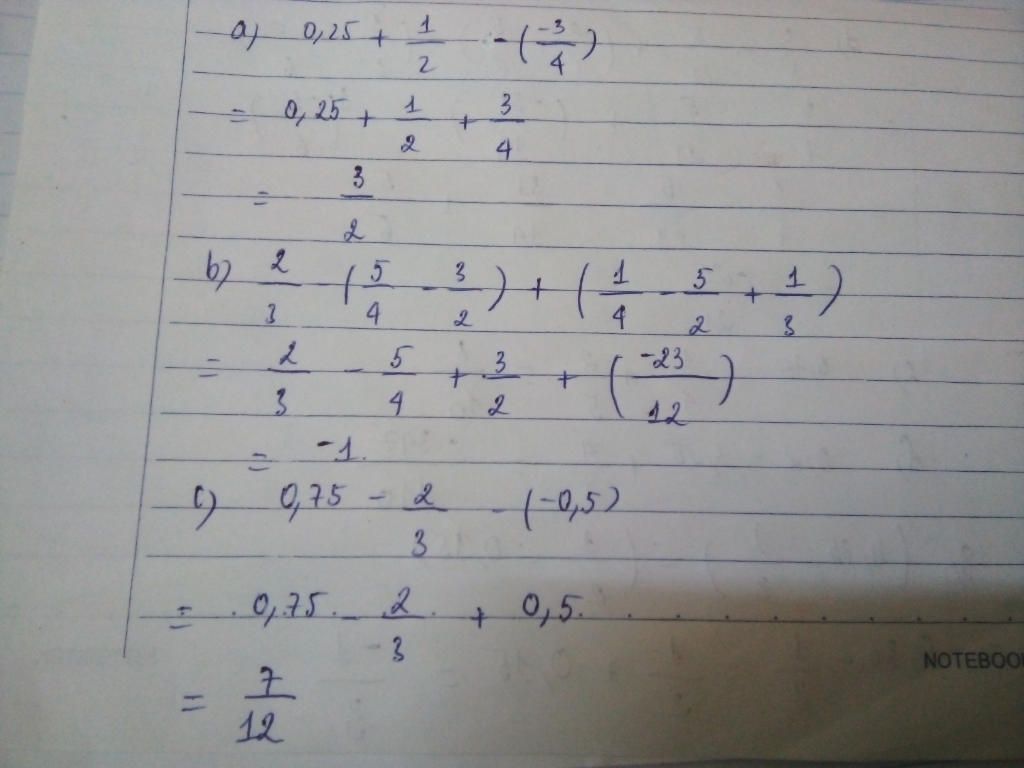 a) 0,25 + 1/2 - (-3/4)
= 0,25 + 1/2 + 3/4
= 3/2
b) 2/3 - (5/4 - 3/2) + (1/4 - 5/2 + 1/3)
= 2/3 - 5/4 + 3/2 + (-23/12)
= -1.
c) 0,75 - 2/3 - (-0,5)
= 0,75 - 2/3 + 0,5
NOTEBOO
= 7/12